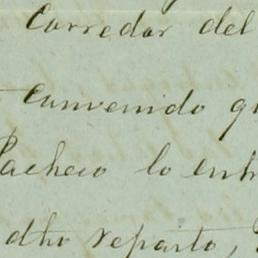 Corredor del
Convenido qu
Pacheco lo entr
dho reparto,